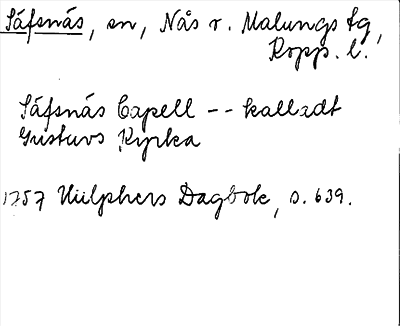 Säfsnäs, sn, Nås r. Malungs tg,
Kopp. l.
Säfsnäs Capell -- kalladt
Gustavs Kyrka
1757 Hülphers Dagbok, s. 639.